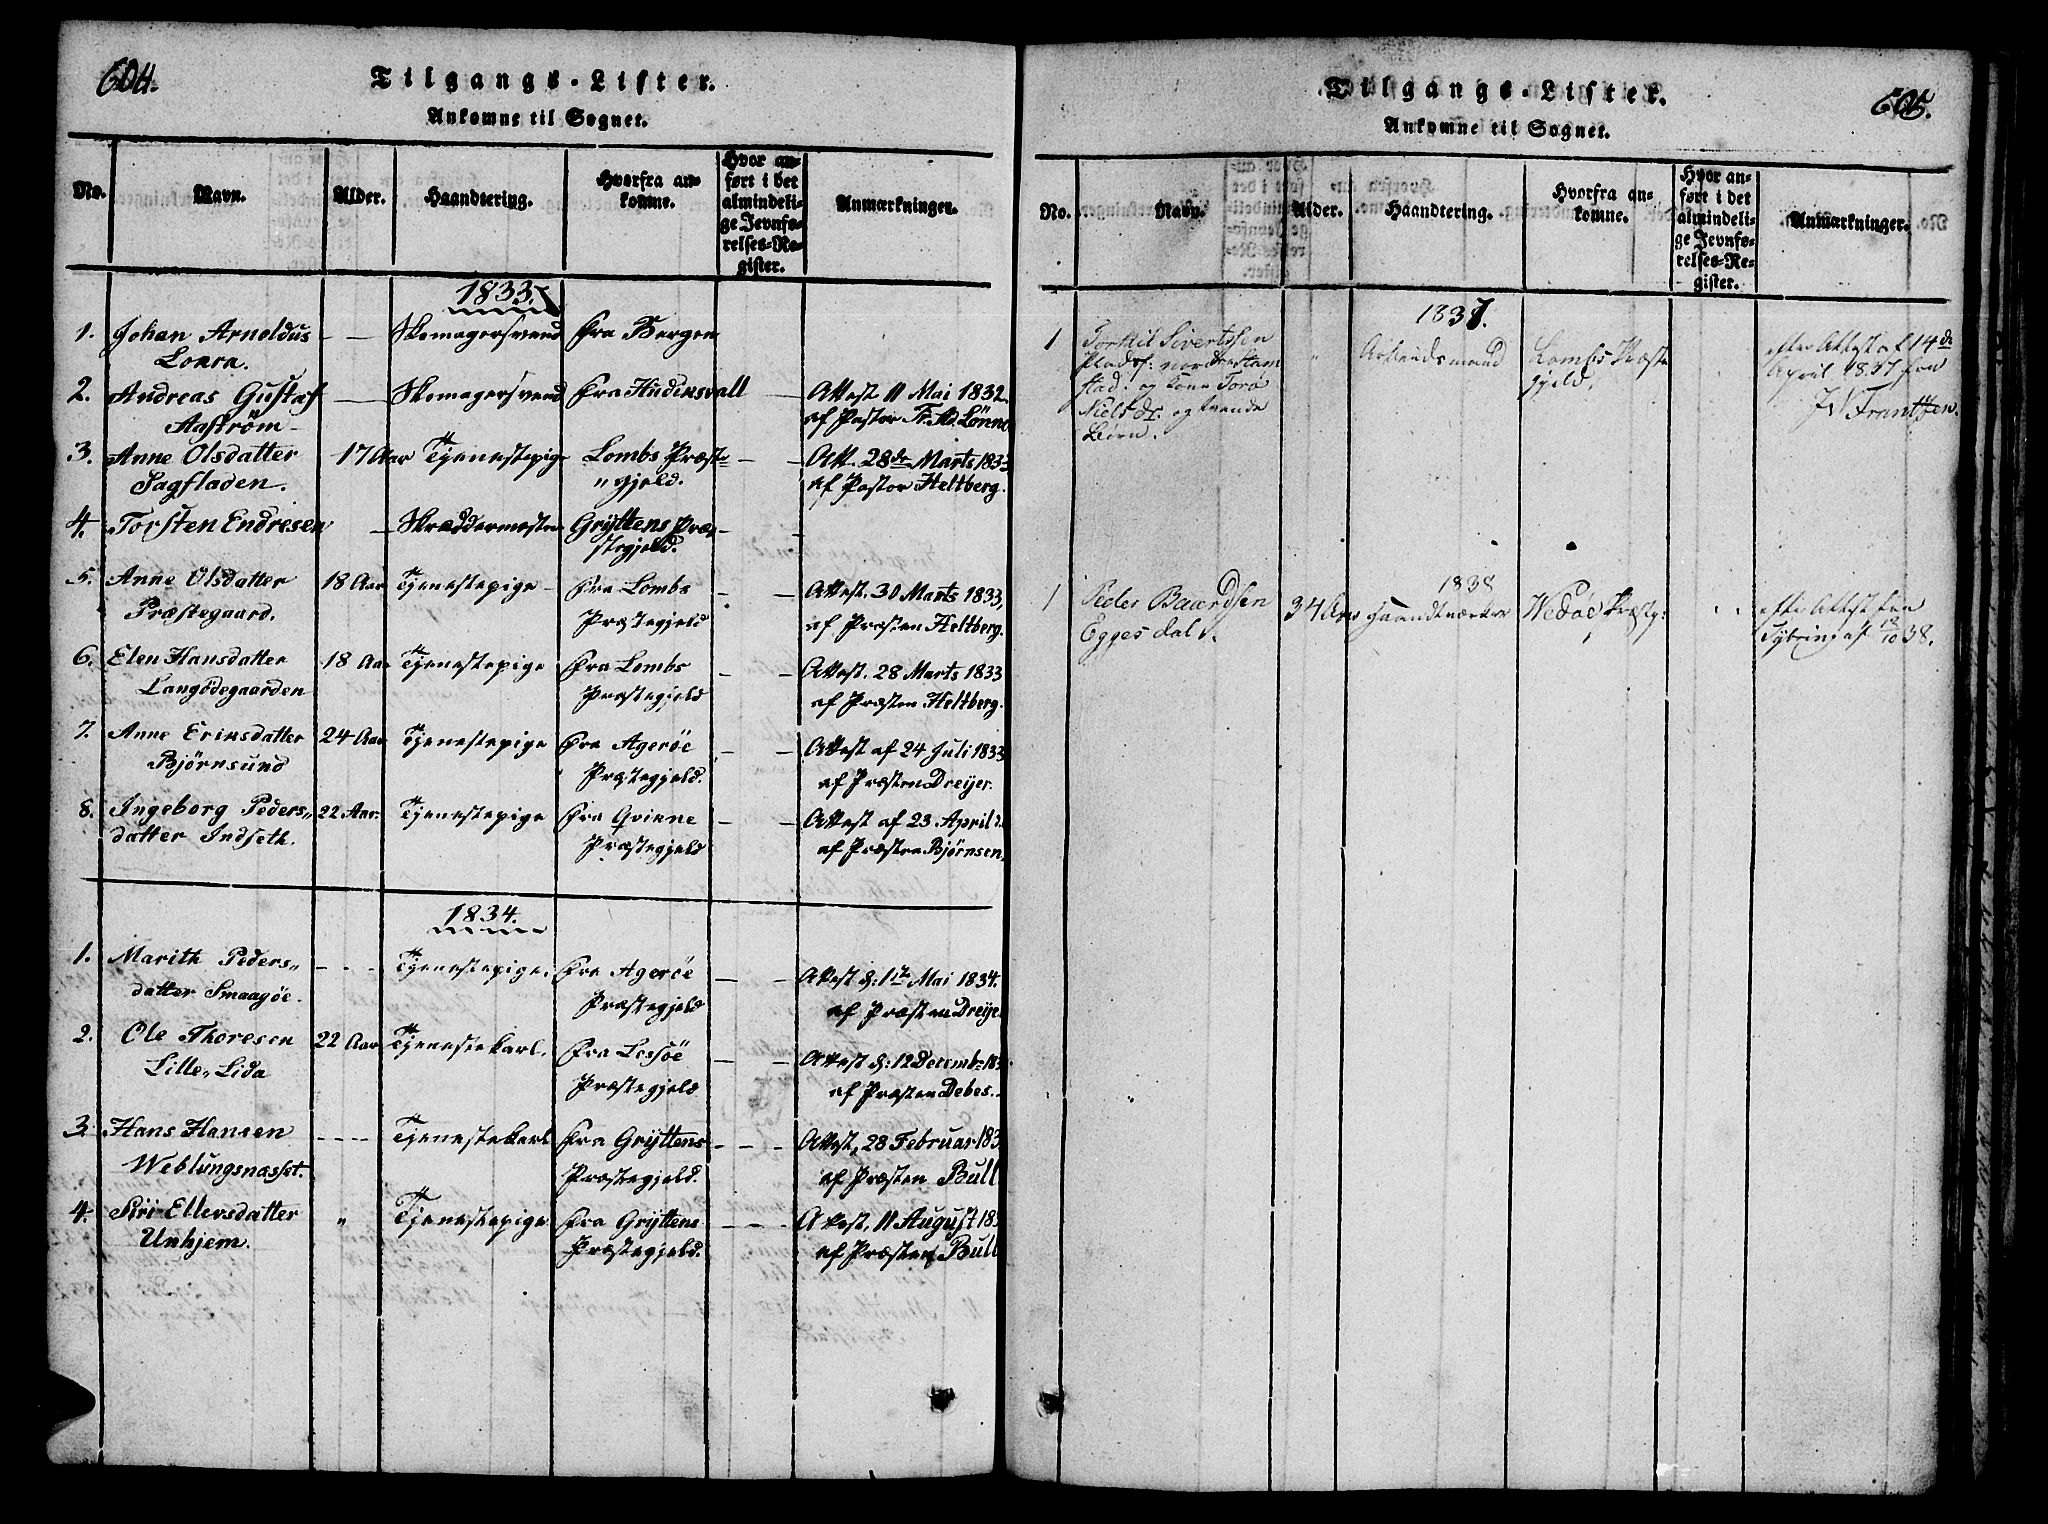 604.
Tilgangs-Lister.
Ankomne til Sognet.
No. Navn. Alder. Haandtering. Hvorfra ankomne. Hvor anført i det almindelige Jevnførelses-Register. Anmærkninger.
1833.
1. Johan Arnoldus - - Skomagersvend Fra Bergen
2. Andreas Gustaf — Skomagersvend Fra Hudinsvall — Attest 11 Mai 1832.
Aaström - af Pastor Fr. Ad. Lønne
3. Anne Olsdatter 17 Aar Tjenestepige Lombs Præste- — Att. 28de Marts 1833
Sagfladen. "gjeld. af Pastor Heltberg.
4. Torsten Endresen - Skræddermester Gryttens Præ- -
stegjeld.
5. Anne Olsdatter 18 Aar Tjenestepige - Fra Lombs - - Attest. 30 Marts 1833,
Præstegaard. Præstegjeld af Præsten Heltberg.
6. Elen Hansdatter 18 Aar Tjenestepige Fra Lombs - - Attest. 28 Marts 1833
Langødegaarden Præstegjeld af Præsten Heltberg.
7. Anne Erinsdatter 24 Aar Tjenestepige Fra Agerøe - - Attest af 24 Juli 1833
Bjørnsund Præstegjeld. af Præsten Dreijer.
8. Ingeborg Peders„ 22 Aar. Tjenestepige Fra Qvinne - — Attest af 23. April
datter Indseth. Præstegjeld af Præsten Bjørnsen.
1834.
1. Marith Peders„ - - - Tjenestepige. Fra Agerøe - - Attest d: 1te Mai 1834.
datter Smaagøe. Præstegjeld af Præsten Dreije
2. Ole Thoresen 22 Aar Tjenestekarl. Fra Lessøe - - Attest d: 12 Decembr 183
Lille„ Lida Præstegjeld af Præsten Debes.
3. Hans Hansen - - - - Tjenestekarl Fra Gryttens - - - Attest, 28 Februar 183
Weblungsnasset. Præstegjeld. af Præsten Bull
4. Siri Ellevsdatter " Tjenestepige Fra Gryttens - - - Attest, 11 August 18
Unhjem. Præstegjeld. af Præsten Bull
605.
Tilgangs-Lister.
Ankomne til Sognet.
No. Navn. Alder. Haandtering. Hvorfra ankomne. Hvor anført i det almindelige Jevnførelses-Register. Anmærkninger.
1837.
1 Torkil Sivertssen " Arbeidsmand Lombs Præste efter Attest af 14de
Plads: nordre Stam gjeld, April 1837 fra
stad. og kone Tora J W Frantzen.
Niels dr. og tvende
Børn.
1838
1 Peder Baardsen 34 Aar Haandtværker Wedøe Præstg: " " efter Attest fra
Eggesdal. af 12/10 38.